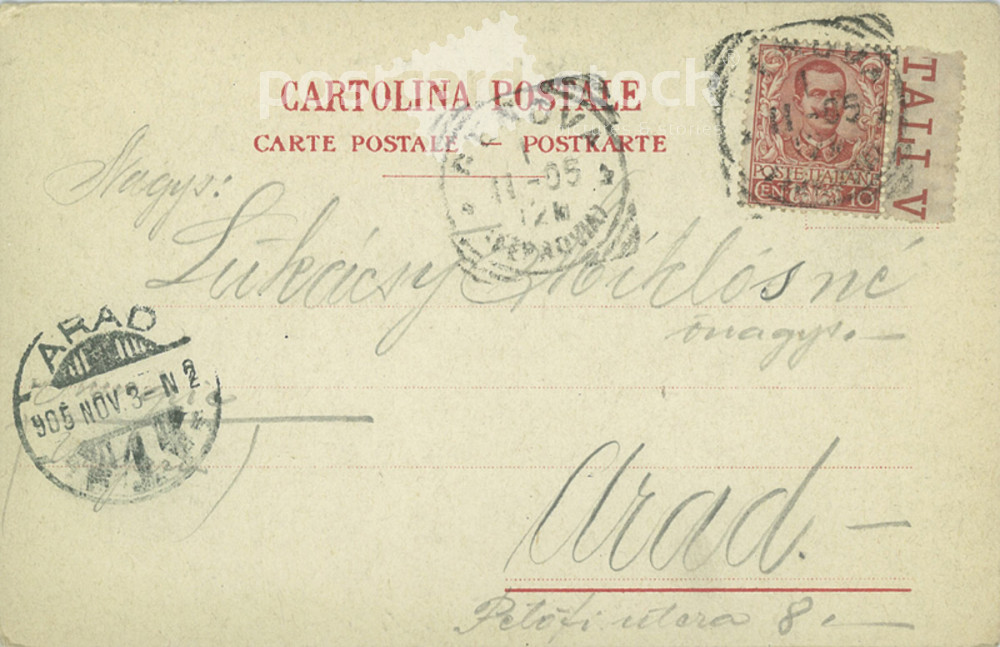 postcardstock
CARTOLINA POSTALE
CARTE POSTALE – POSTKARTE
GENOVA
1
11-05
12M
(FERROVIA)
11-05
POSTE ITALIANE
CENT. 10
TALI V
Nagys:
Lukácsy Miklósné
önagys.–
ARAD
905 NOV. 3-N 2
Arad.–
Petőfi utcza 8